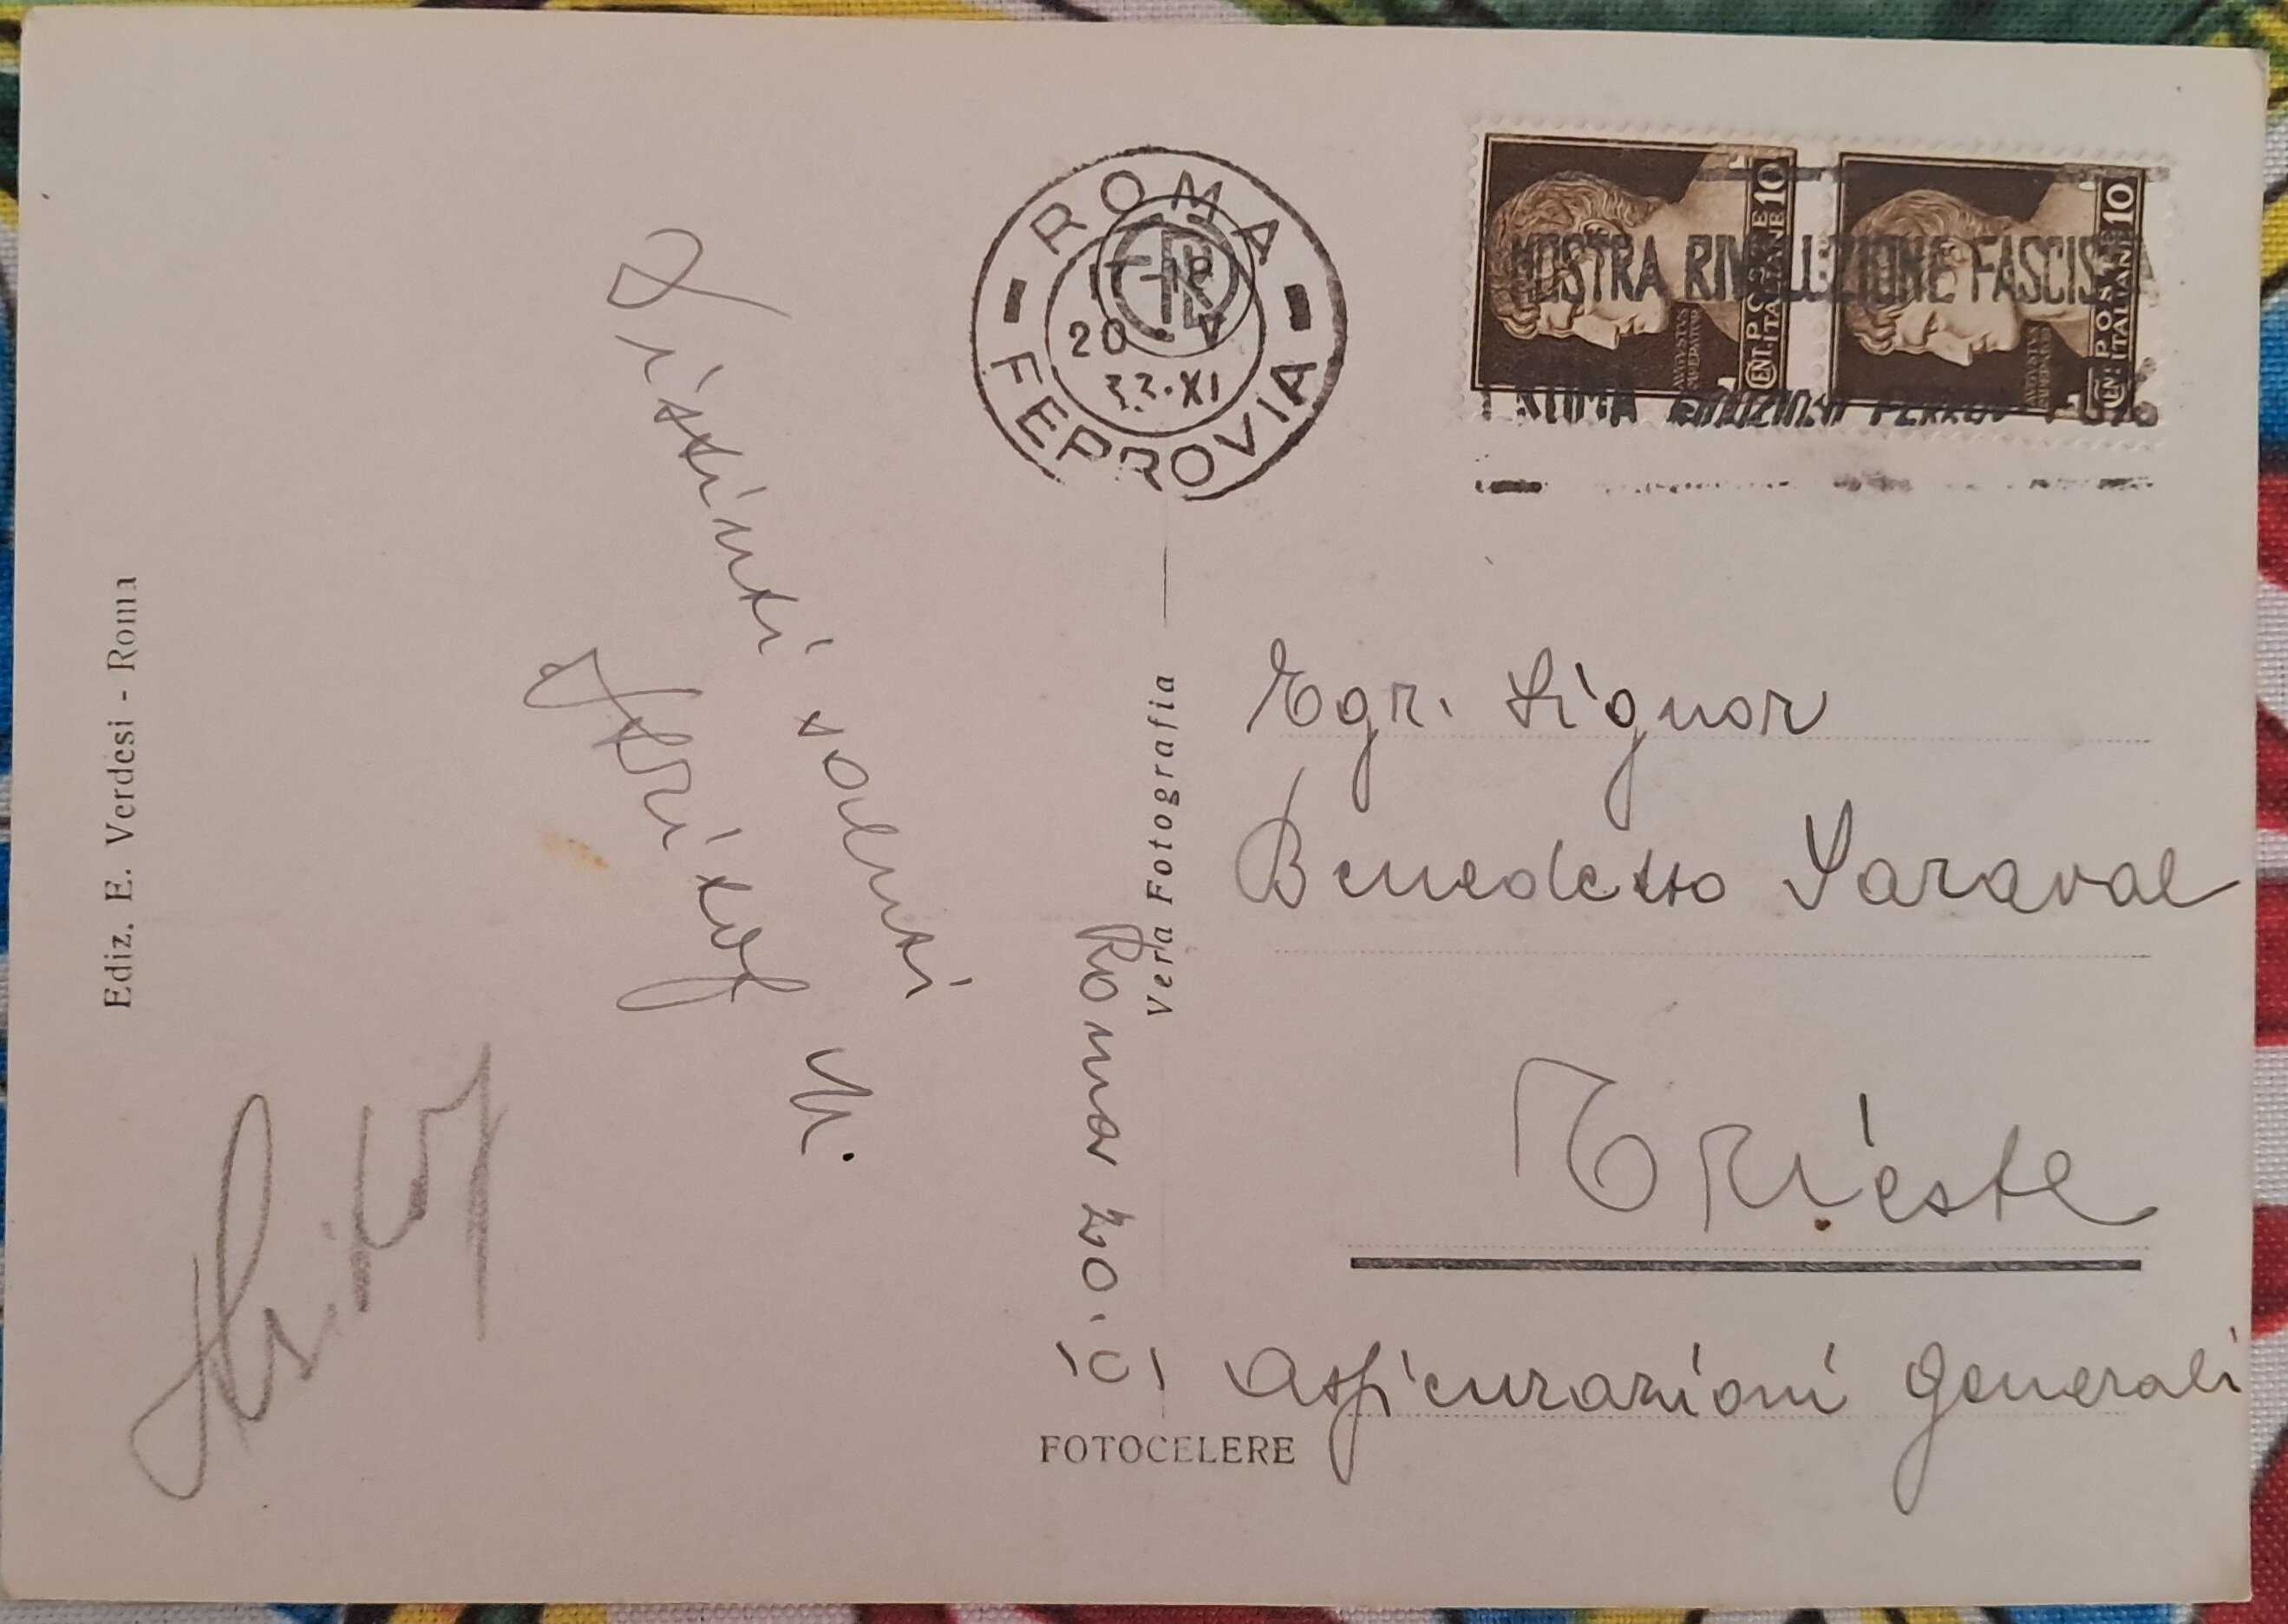 Ediz. E. Verdesi - Roma
Distinti saluti
ROMA
FERROVIA
17-18
20 V
33-XI
MOSTRA RIVOLUZIONE FASCISTA
ROMA RIDUZIONI FERROV
POSTE
ITALIANE
CENT. 10
AVGVSTVS
POSTE
ITALIANE
CENT. 10
Vera Fotografia
Roma 20.
Egr. Signor
Benedetto Saraval
Trieste
Assicurazioni Generali
FOTOCELERE